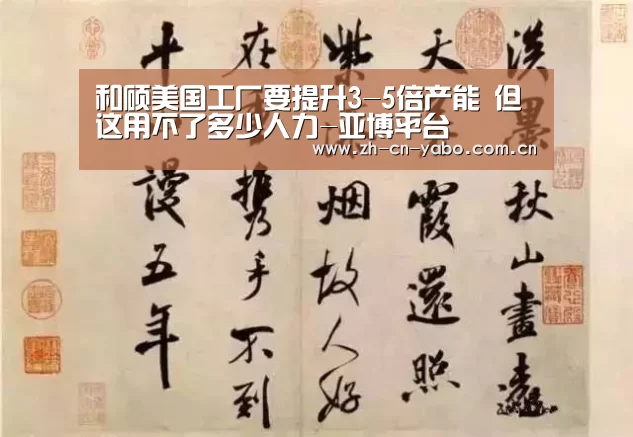 和硕美国工厂要提升3-5倍产能 但
这用不了多少人力-亚博平台
www.zh-cn-yabo.com.cn
淡墨秋山畫遠
天霞還照
紫烟故人好
在重攜手不到
平謾五年